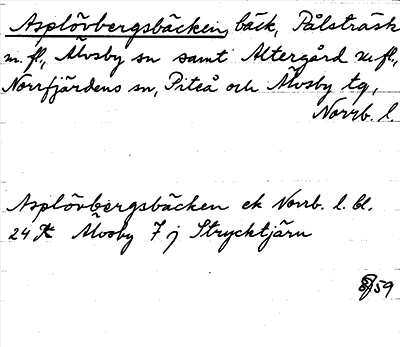 Asplövbergsbäcken, bäck, Pålsträsk
m. fl., Älvsby sn samt Altergård m fl.,
Norrfjärdens sn, Piteå och Älvsby tg,
Norrb. l.
Asplövbergsbäcken ek Norrb. l. bl.
24 Älvsby 7 j Strycktjärn
59